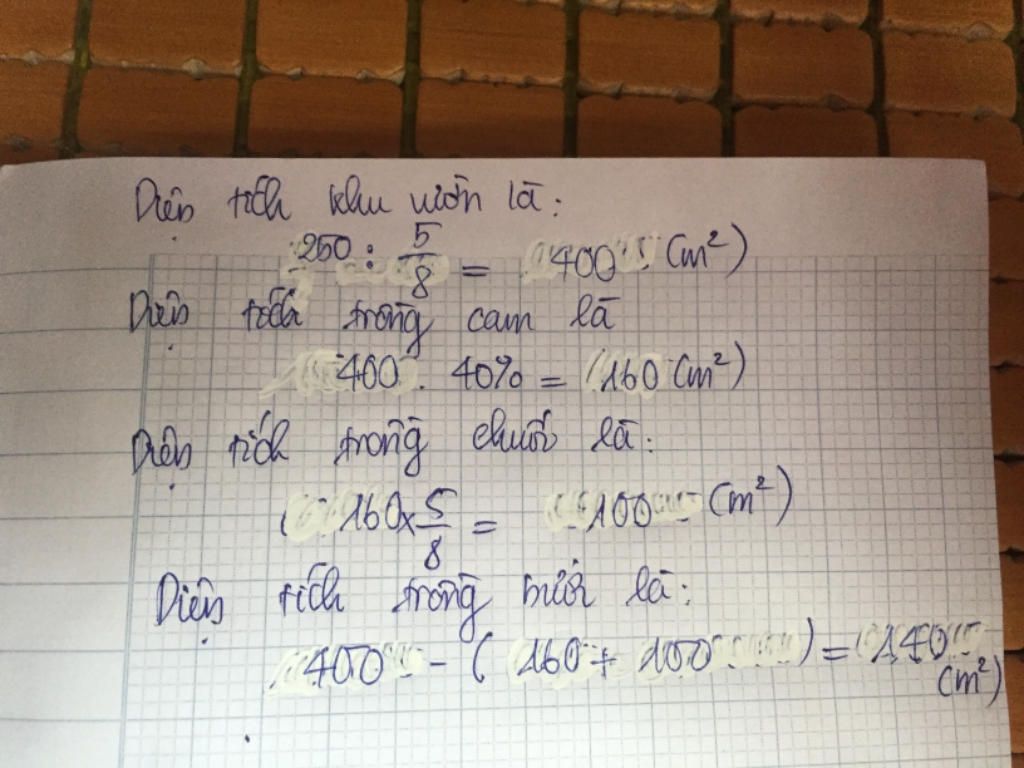 Diện tích khu vườn là:
250 : 5/8 = 400 (m²)
Diện tích trồng cam là
400 . 40% = 160 (m²)
Diện tích trồng chuối là:
160 x 5/8 = 100 (m²)
Diện tích trồng bưởi là:
400 - ( 160 + 100 ) = 140
(m²)